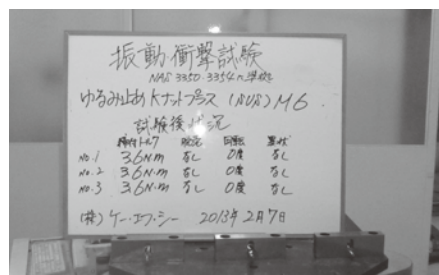 振動衝撃試験
NAS 3350・3354に準拠
ゆるみ止めKナットプラス (SUS) M6
試験後状況
締付トルク 脱落 回転 異状
No.1 36N・m なし 0度 なし
No.2 36N・m なし 0度 なし
No.3 36N・m なし 0度 なし
(株)ケー・エフ・シー 2013年2月7日